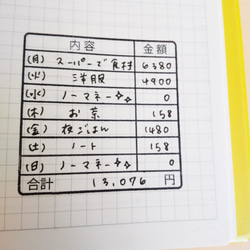 内容 金額
(月) スーパーで食材 6380
(火) 洋服 4900
(水) ノーマネー 0
(木) お茶 158
(金) 夜ごはん 1480
(土) ノート 158
(日) ノーマネー 0
合計 13,076 円